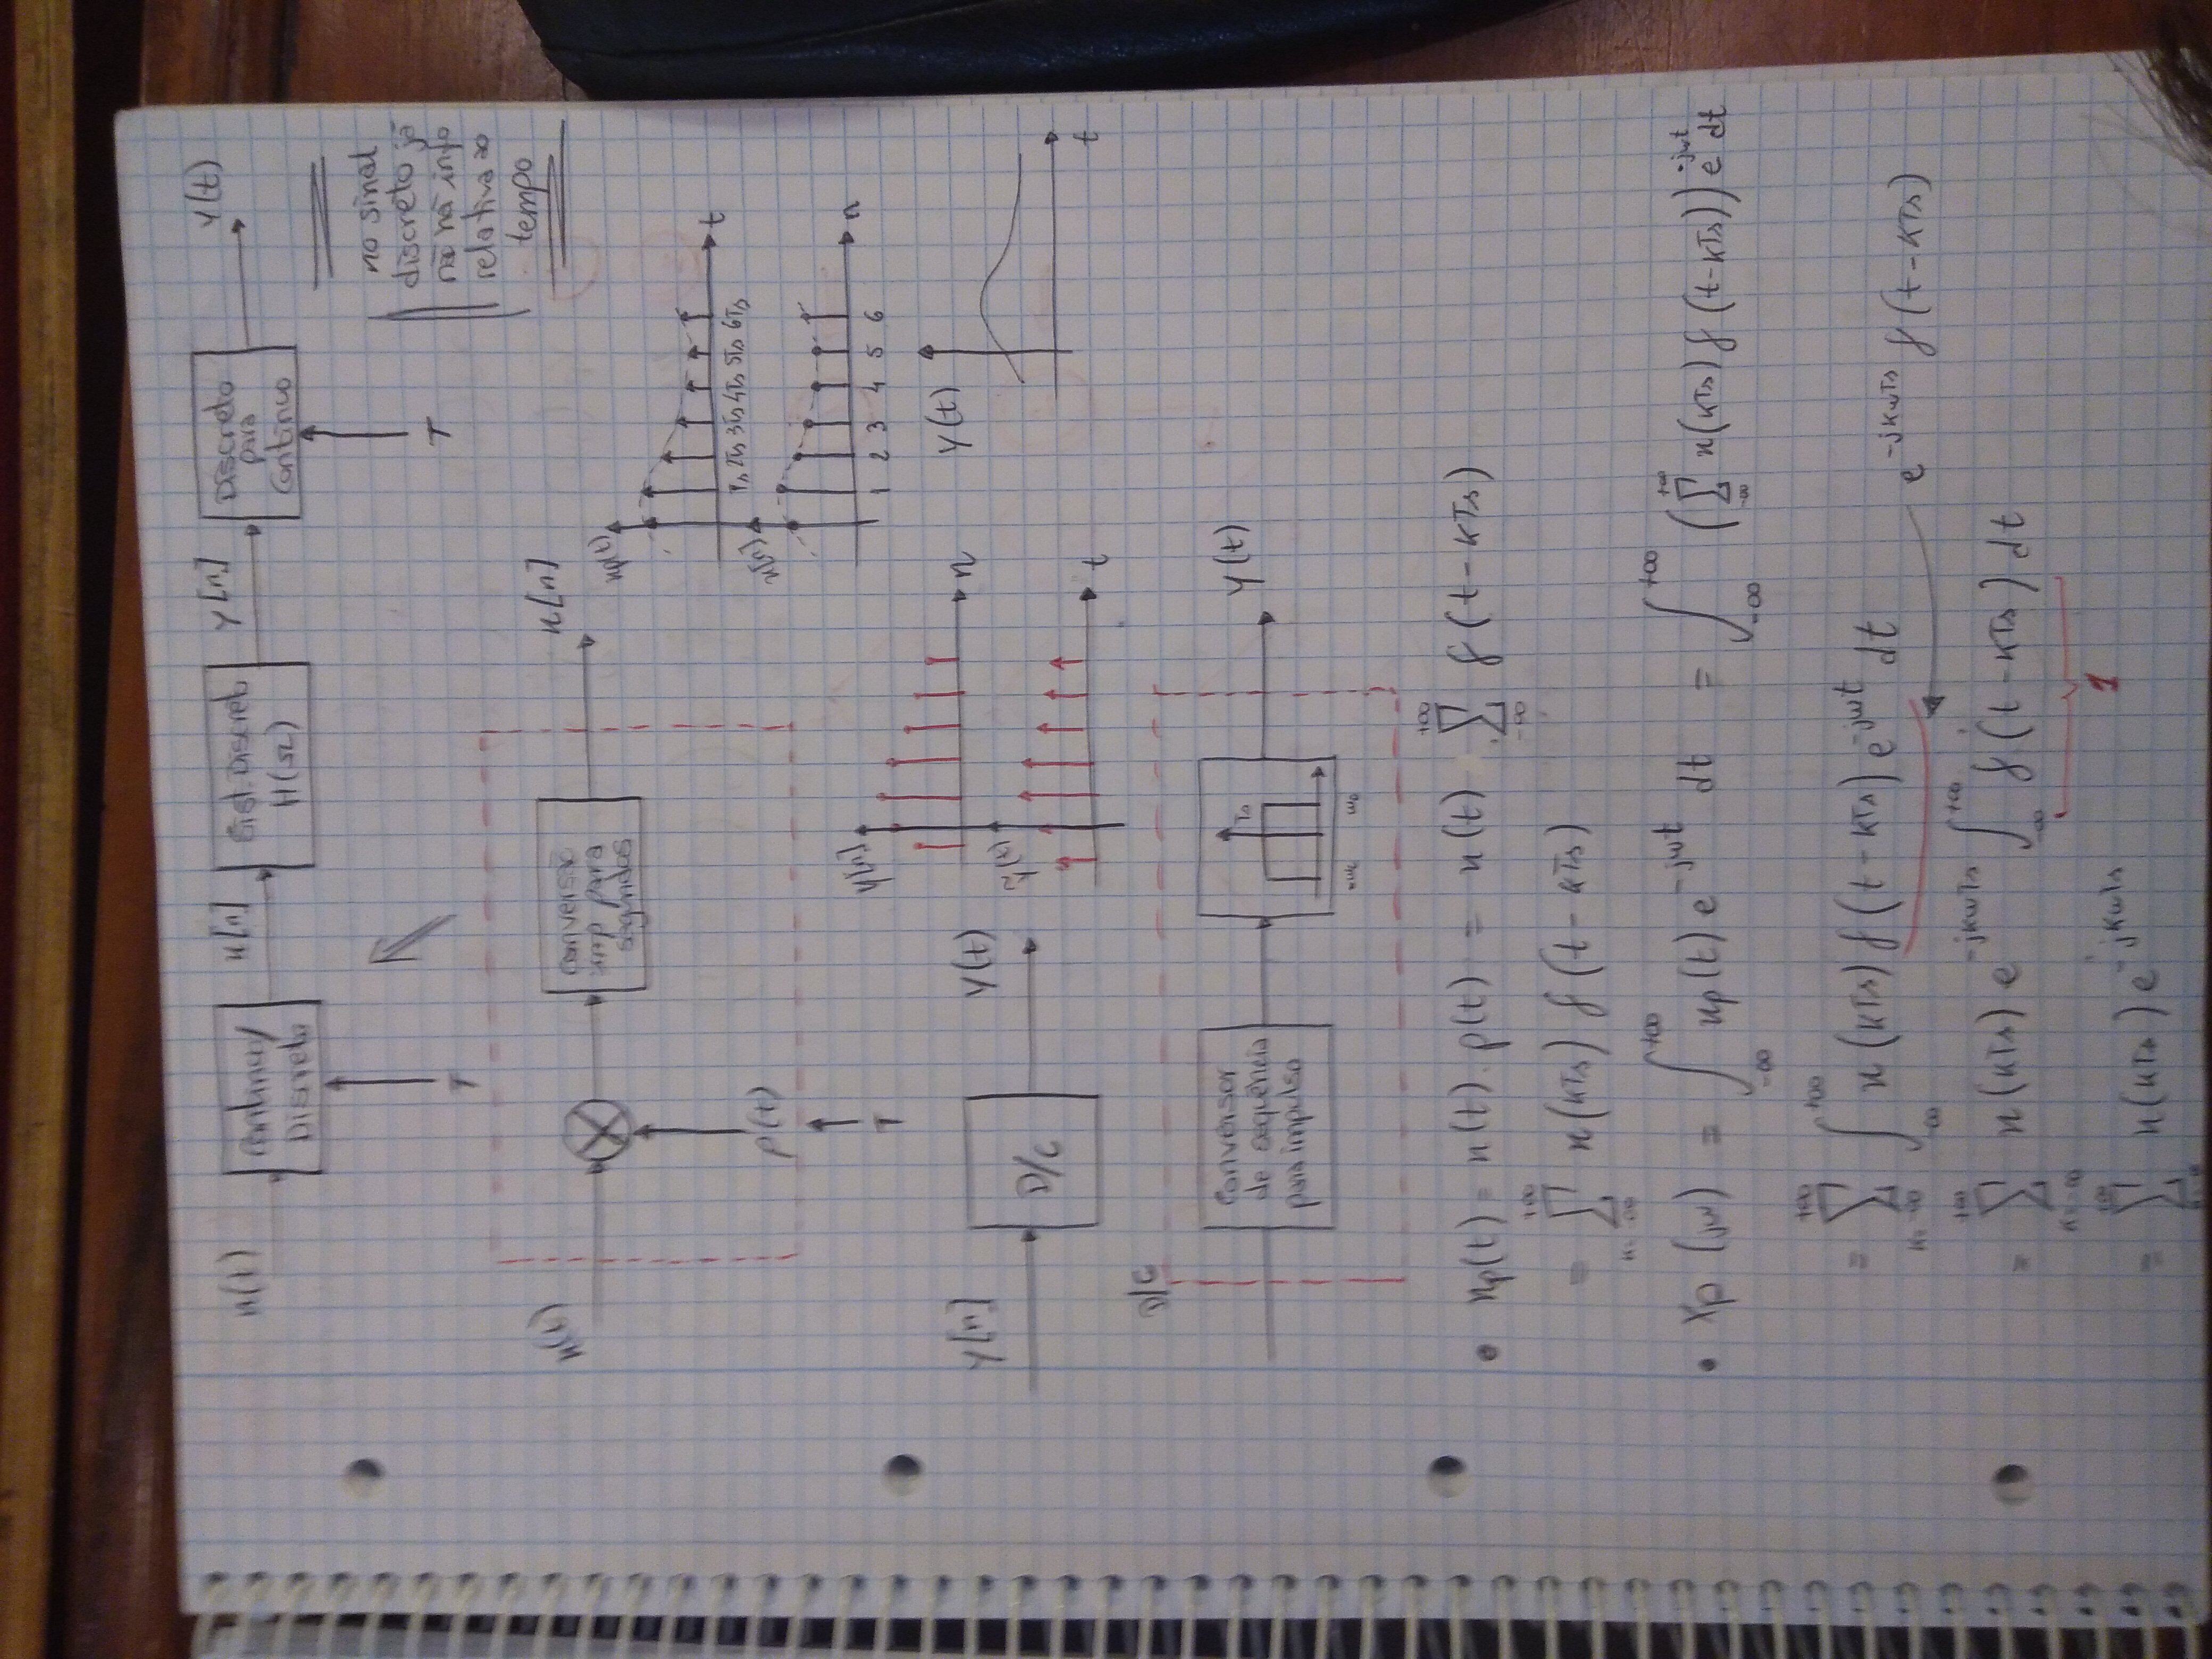 x(t)
Contínuo/
Discreto
x[n]
Sist. Discreto
H(Ω)
y[n]
Discreto
para
Contínuo
y(t)
T
T
no sinal
discreto já
não há info
relativa ao
tempo
x(t)
conversão
imp para
segundos
x[n]
p(t)
T
xp(t)
Ts 2Ts 3Ts 4Ts 5Ts 6Ts
t
x[n]
1 2 3 4 5 6
n
y[n]
D/C
y(t)
y[n]
n
ỹ(t)
t
y(t)
t
D/C
Conversor
de sequência
para impulso
Ts
-ωc
y(t)
• xp(t) = x(t) . p(t) = x(t) . ∑_{-∞}^{+∞} δ(t-kTs)
= ∑_{k=-∞}^{+∞} x(kTs) δ(t-kTs)
• Xp (jω) = ∫_{-∞}^{+∞} xp(t) e^{-jωt} dt = ∫_{-∞}^{+∞} (∑_{-∞}^{+∞} x(kTs) δ(t-kTs)) e^{-jωt} dt
= ∑_{k=-∞}^{+∞} ∫_{-∞}^{+∞} x(kTs) δ(t-kTs) e^{-jωt} dt
e^{-jkωTs} δ(t-kTs)
= ∑_{k=-∞}^{+∞} x(kTs) e^{-jkωTs} ∫_{-∞}^{+∞} δ(t-kTs) dt
1
= ∑_{k=-∞}^{+∞} x(kTs) e^{-jkωTs}